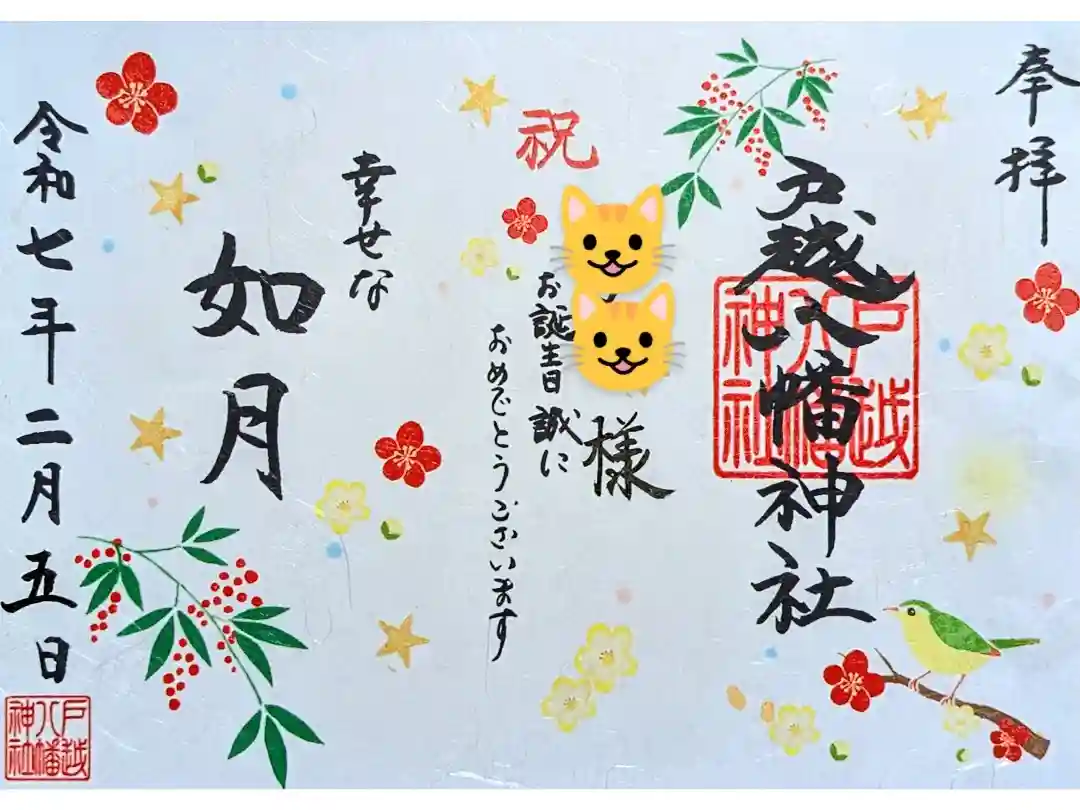 奉拝
戸越八幡神社
戸越
八幡
神社
祝
様
お誕生日誠に
おめでとうございます
幸せな
如月
令和七年二月五日
戸越
八幡
神社